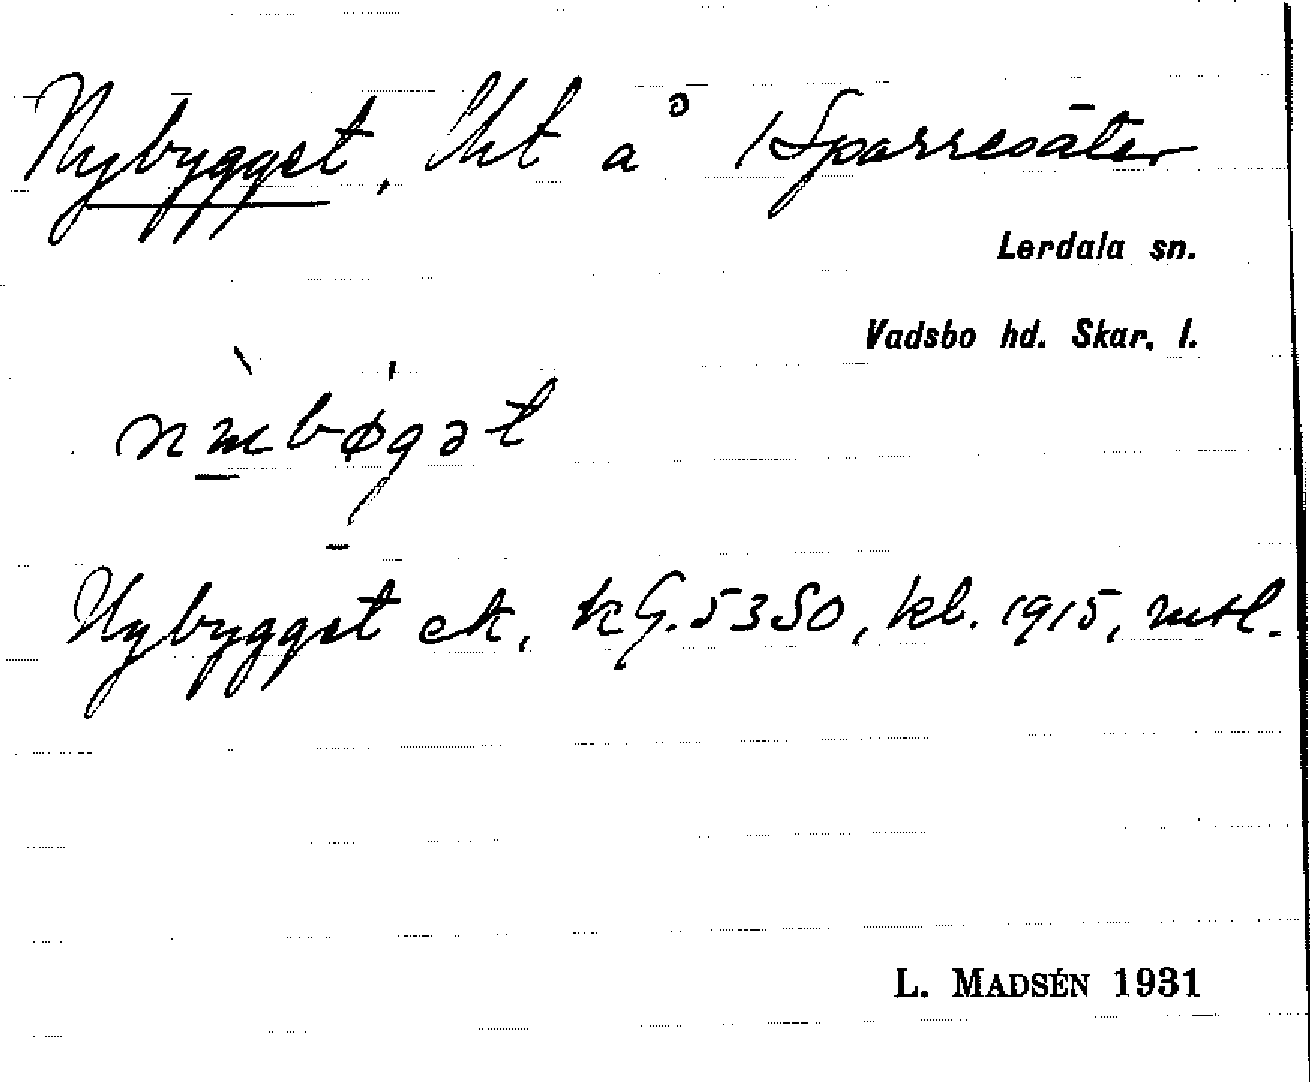 Nybygget, lht å 1 Sparresäter
Lerdala sn.
Vadsbo hd. Skar. l.
Nybygget ek, kG. 5350, kl. 1915, mtl.
L. MADSÉN 1931